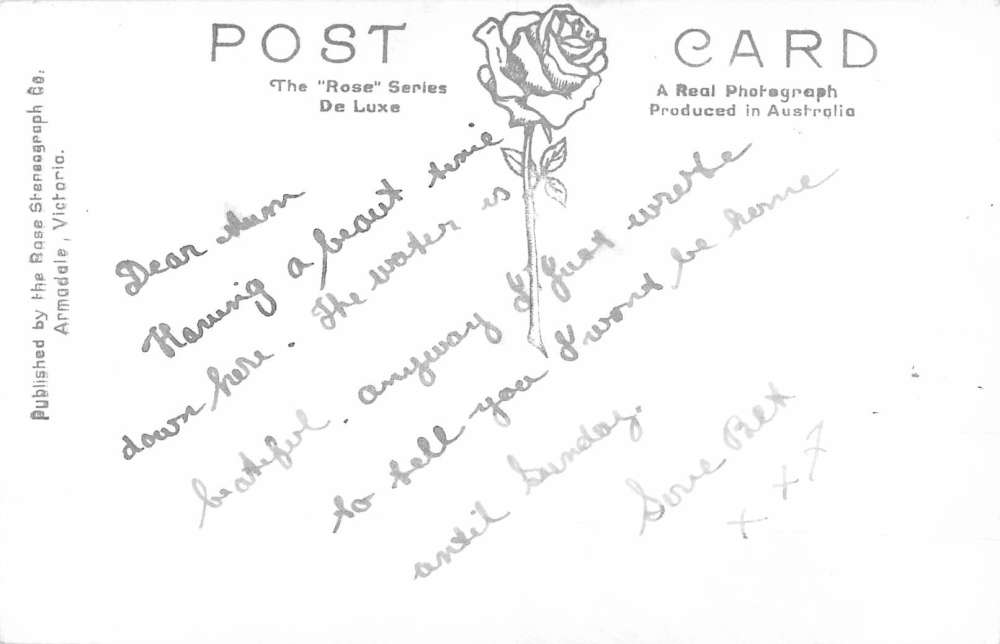 POST CARD
The "Rose" Series
De Luxe
A Real Photograph
Produced in Australia
Published by the Rose Stereograph Co.
Armadale, Victoria.
Dear Mum
Having a beaut time
down here. The water is
beatiful. anyway I Just wrote
to tell you I wont be home
until Sunday.
Love Pat
+ + +